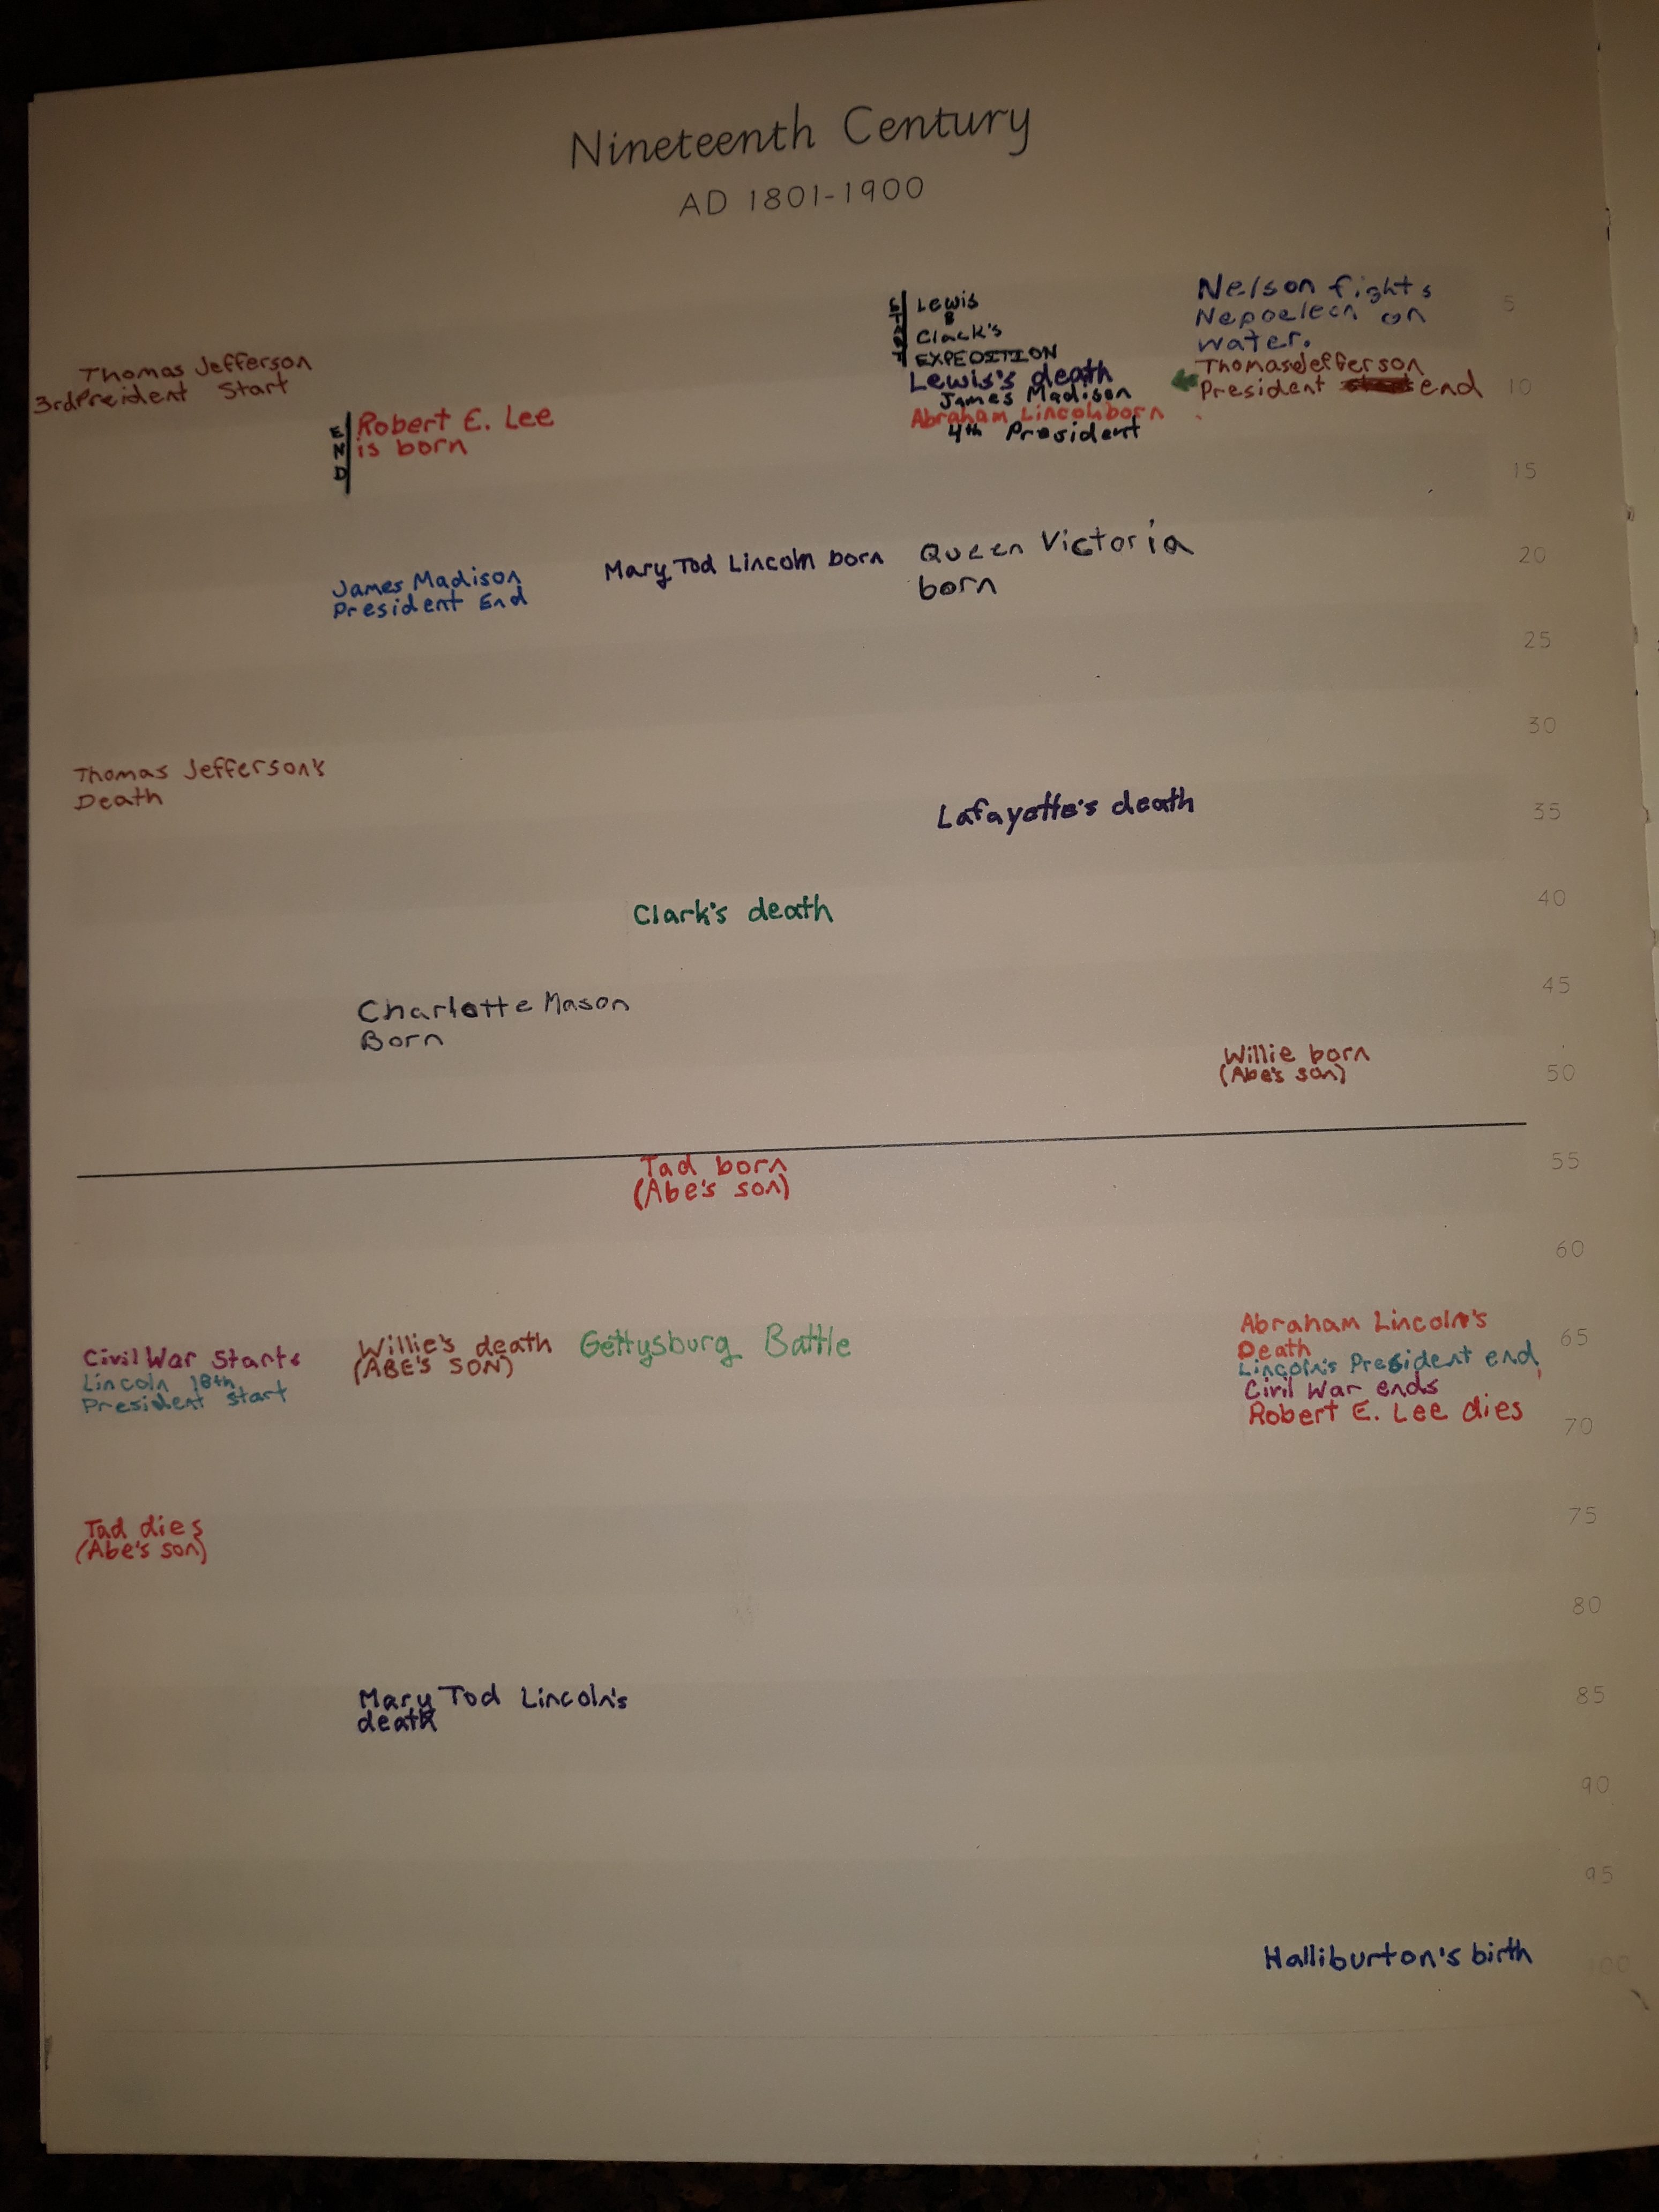 Nineteenth Century
AD 1801-1900
START
Lewis
&
Clack's
EXPEDITION
Nelson fights
Nepoelecn on
water.
5
Thomas Jefferson
3rd Preident Start
Lewis's death
James Madison
Abraham Lincoln born
4th President
Thomas Jefferson
President end
10
END
Robert E. Lee
is born
15
James Madison
President End
Mary Tod Lincoln born
Queen Victoria
born
20
25
30
Thomas Jefferson's
Death
Lafayette's death
35
Clark's death
40
Charlotte Mason
Born
45
Willie born
(Abe's son)
50
Tad born
(Abe's son)
55
60
Civil War Starts
Lincoln 18th
President Start
Willie's death
(ABE'S SON)
Gettysburg Battle
Abraham Lincoln's
Death
Lincoln's President end
Civil War ends
Robert E. Lee dies
65
70
Tad dies
(Abe's son)
75
80
Mary Tod Lincoln's
death
85
90
95
Halliburton's birth
100